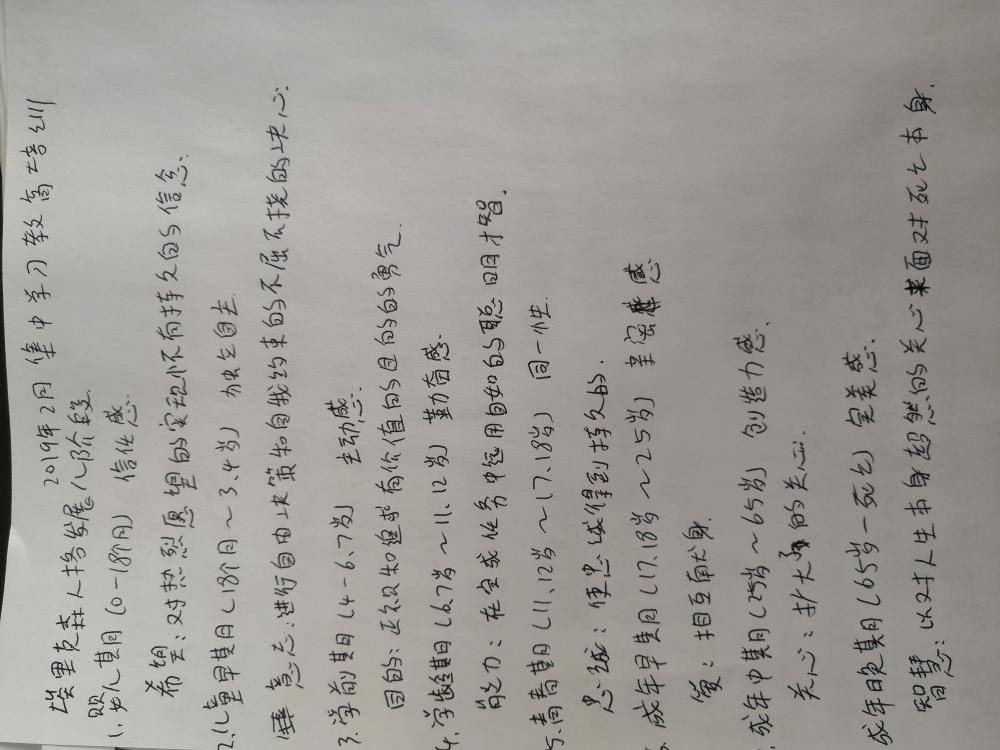 2019年2月 集中学习教高培训
埃里克森人格发展八阶段
1.婴儿期(0-18个月) 信任感.
希望:对热烈愿望的实现怀有持久的信念.
2.儿童早期(18个月~3.4岁) 独立自主
意志:进行自由决策和自我约束的不屈不挠的决心.
3.学前期(4-6.7岁) 主动感.
目的:正视和追求有价值的目的的勇气.
4.学龄期(6.7岁~11、12岁) 勤奋感.
能力:在完成任务中运用自如的聪明才智.
5.青春期(11、12岁~17.18岁) 同一性
忠诚:使忠诚得到持久的.
成年早期(17.18岁~25岁) 亲密感
爱:相互献身.
成年中期(25岁~65岁) 创造力感.
关心:扩大的关心.
成年晚期(65岁-死亡) 完美感.
智慧:以对人生本身超然的关心来面对死亡本身.